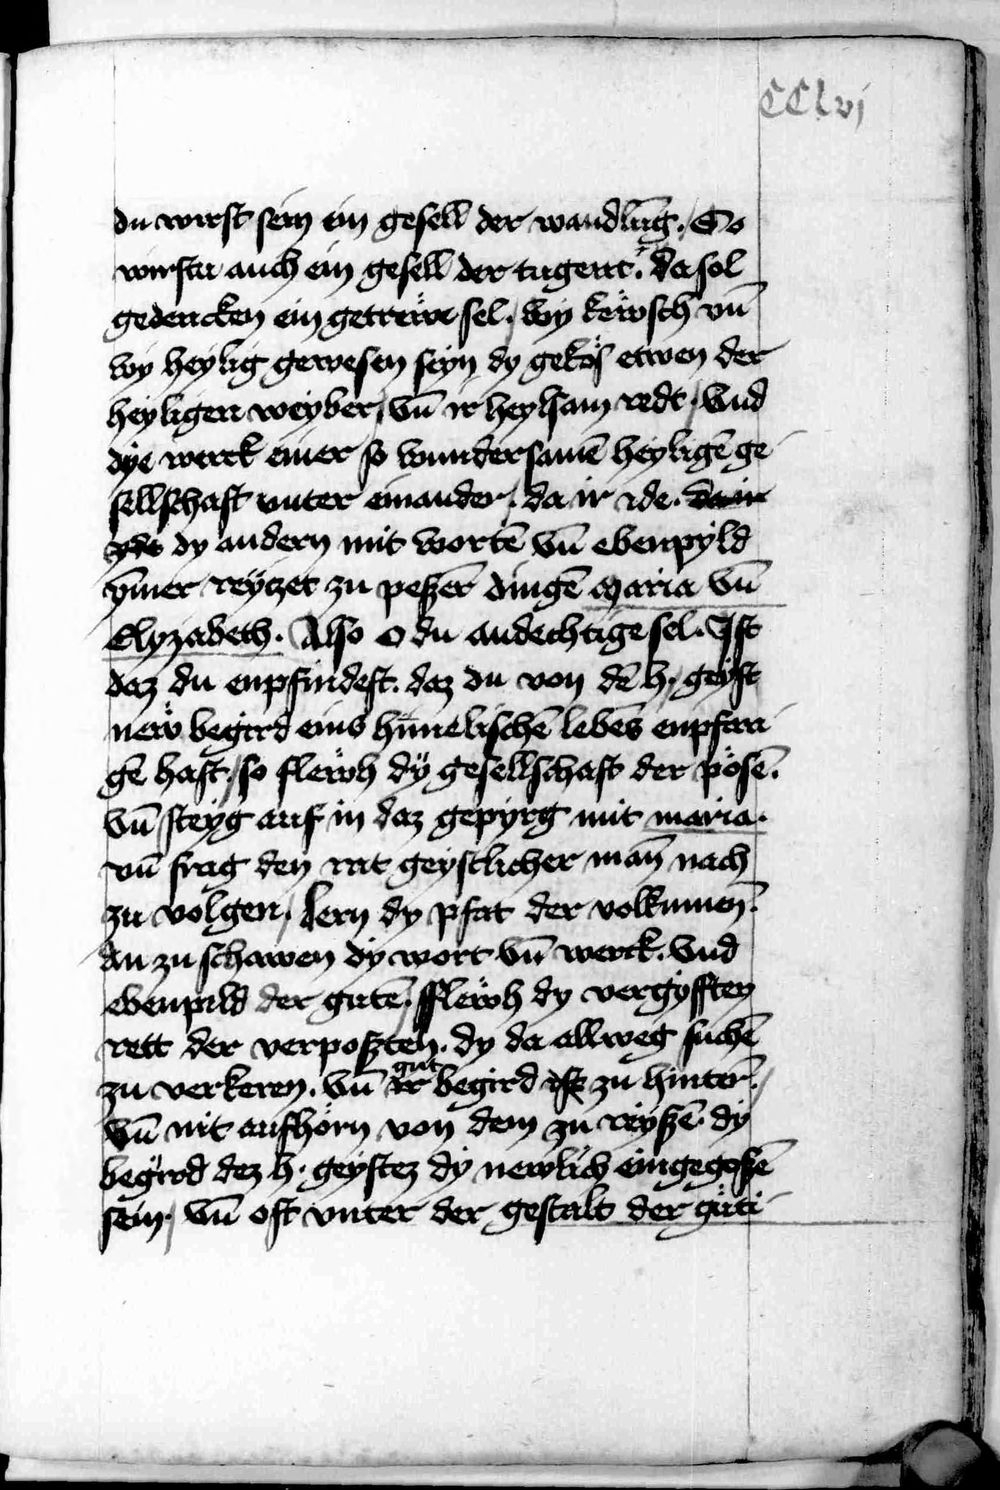 CClvj
du wirst sein ein gesell der wandlūg. So
wirstu auch ein gesell der tugent. da sol
gedencken ein getrewe sel. wy kewsch vn̄
wy heylig gewesen seyn dy gekös etwen der
heyligen weyber, vn̄ ir heylsam redt, vnd
dye werck einer so wundersamē heyligē ge
sellschaft vnter einander. da ir ide. da ir
yde dy andern mit wortē vn̄ ebenpyld
ȳmer reyczet zu peßer dingē maria vn̄
Elyzabeth. Also O du andechtige sel. Ist
daz du enpfindest. daz du von dē h. geyst
new begird eins hīmelischē lebēs enpfan
gē hast, so flewh dÿ gesellschaft der pösē.
vn̄ steyg auf in daz gepyrg mit maria.
vn̄ frag den rat geystlicher man̄ nach
zu volgen, lern dy pfat der volkumen̄.
An zu schawen dy wort vn̄ werck. vnd
ebenpild der gutē. Flewh dy vergyfften
rett der verpoßten. dy da allweg suchē
zu verkeren. vn̄ ir gut begird ist zu hinter.
vn̄ nit aufhörn von dem zu reyßē dy
begird dez h. geystez dy newlich eingegoßē
sein. vn̄ oft vnter der gestalt der güti